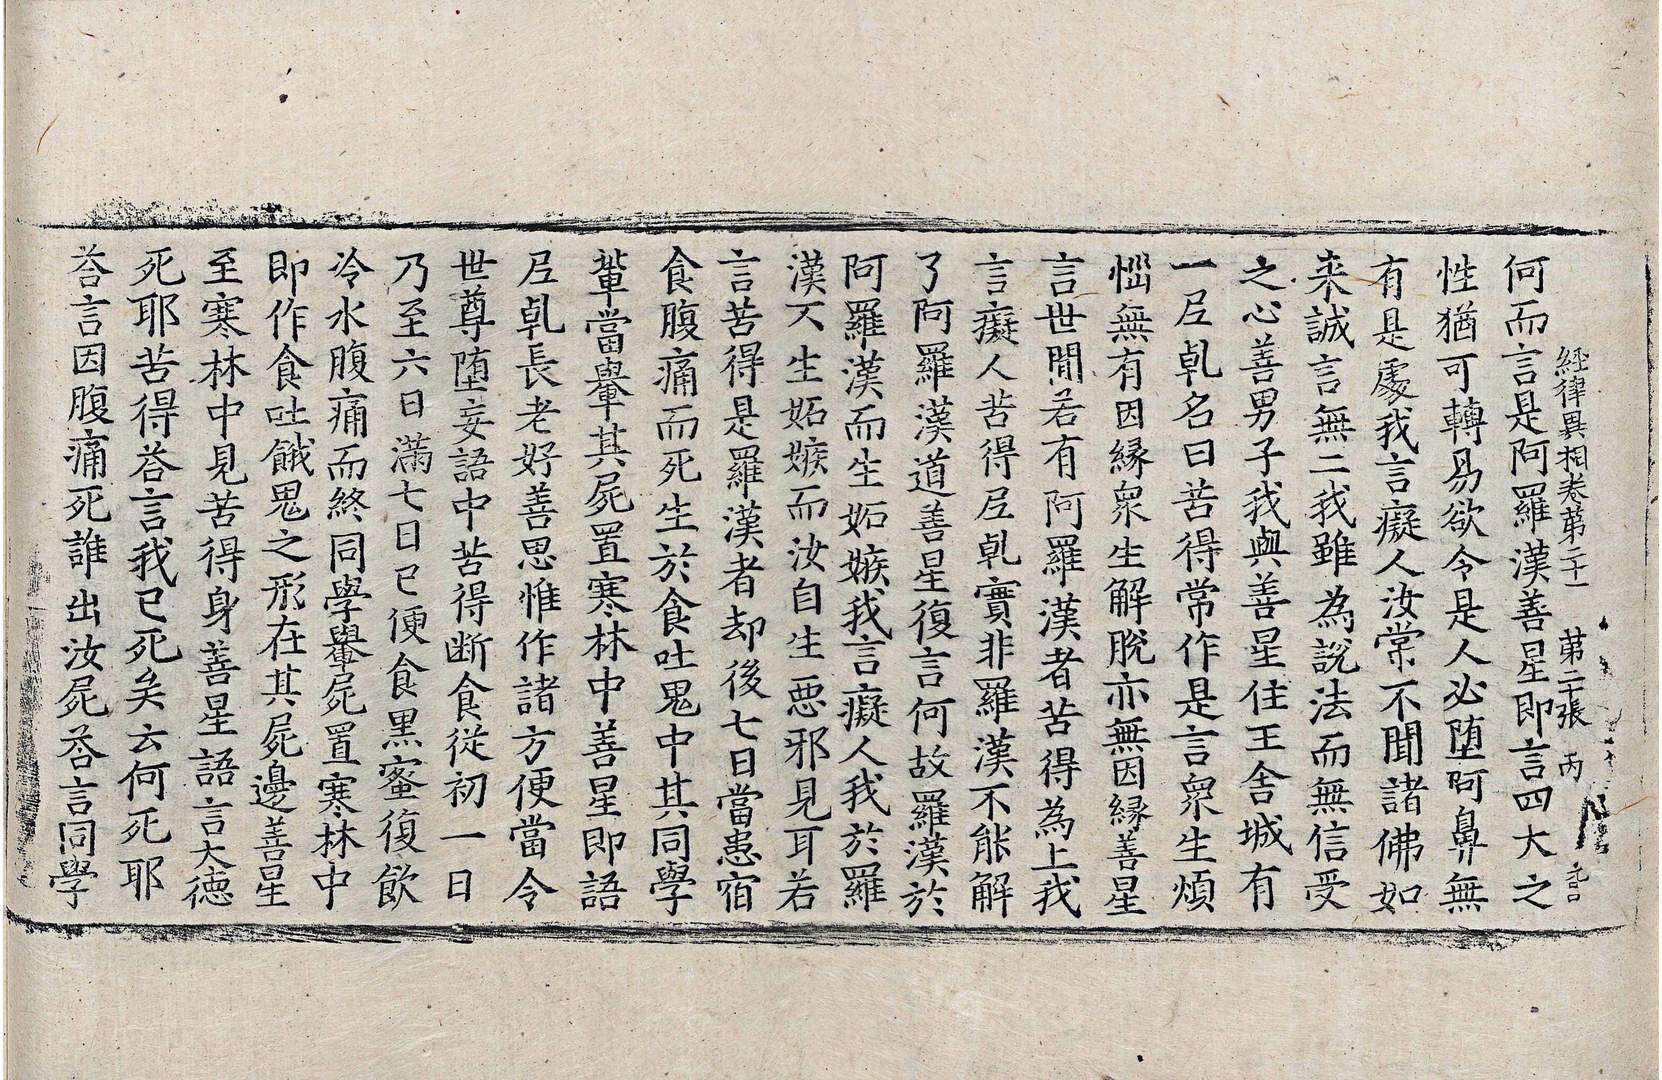 經律異相卷第二十一 第二十張 丙
何而言是阿羅漢善星即言四大之
性猶可轉易欲令是人必墮阿鼻無
有是處我言癡人汝常不聞諸佛如
来誠言無二我雖為說法而無信受
之心善男子我與善星住王舍城有
一尼乹名曰苦得常作是言衆生煩
惱無有因縁衆生解脫亦無因縁善星
言世間若有阿羅漢者苦得為上我
言癡人苦得尼乹實非羅漢不能解
了阿羅漢道善星復言何故羅漢於
阿羅漢而生妬嫉我言癡人我於羅
漢不生妬嫉而汝自生惡邪見耳若
言苦得是羅漢者却後七日當患宿
食腹痛而死生於食吐鬼中其同學
輩當轝其屍置寒林中善星即語
尼乹長老好善思惟作諸方便當令
世尊墮妄語中苦得断食從初一日
乃至六日滿七日已便食黑蜜復飲
冷水腹痛而終同學轝屍置寒林中
即作食吐餓鬼之形在其屍邊善星
至寒林中見苦得身善星語言大德
死耶苦得荅言我已死矣云何死耶
荅言因腹痛死誰出汝屍荅言同學